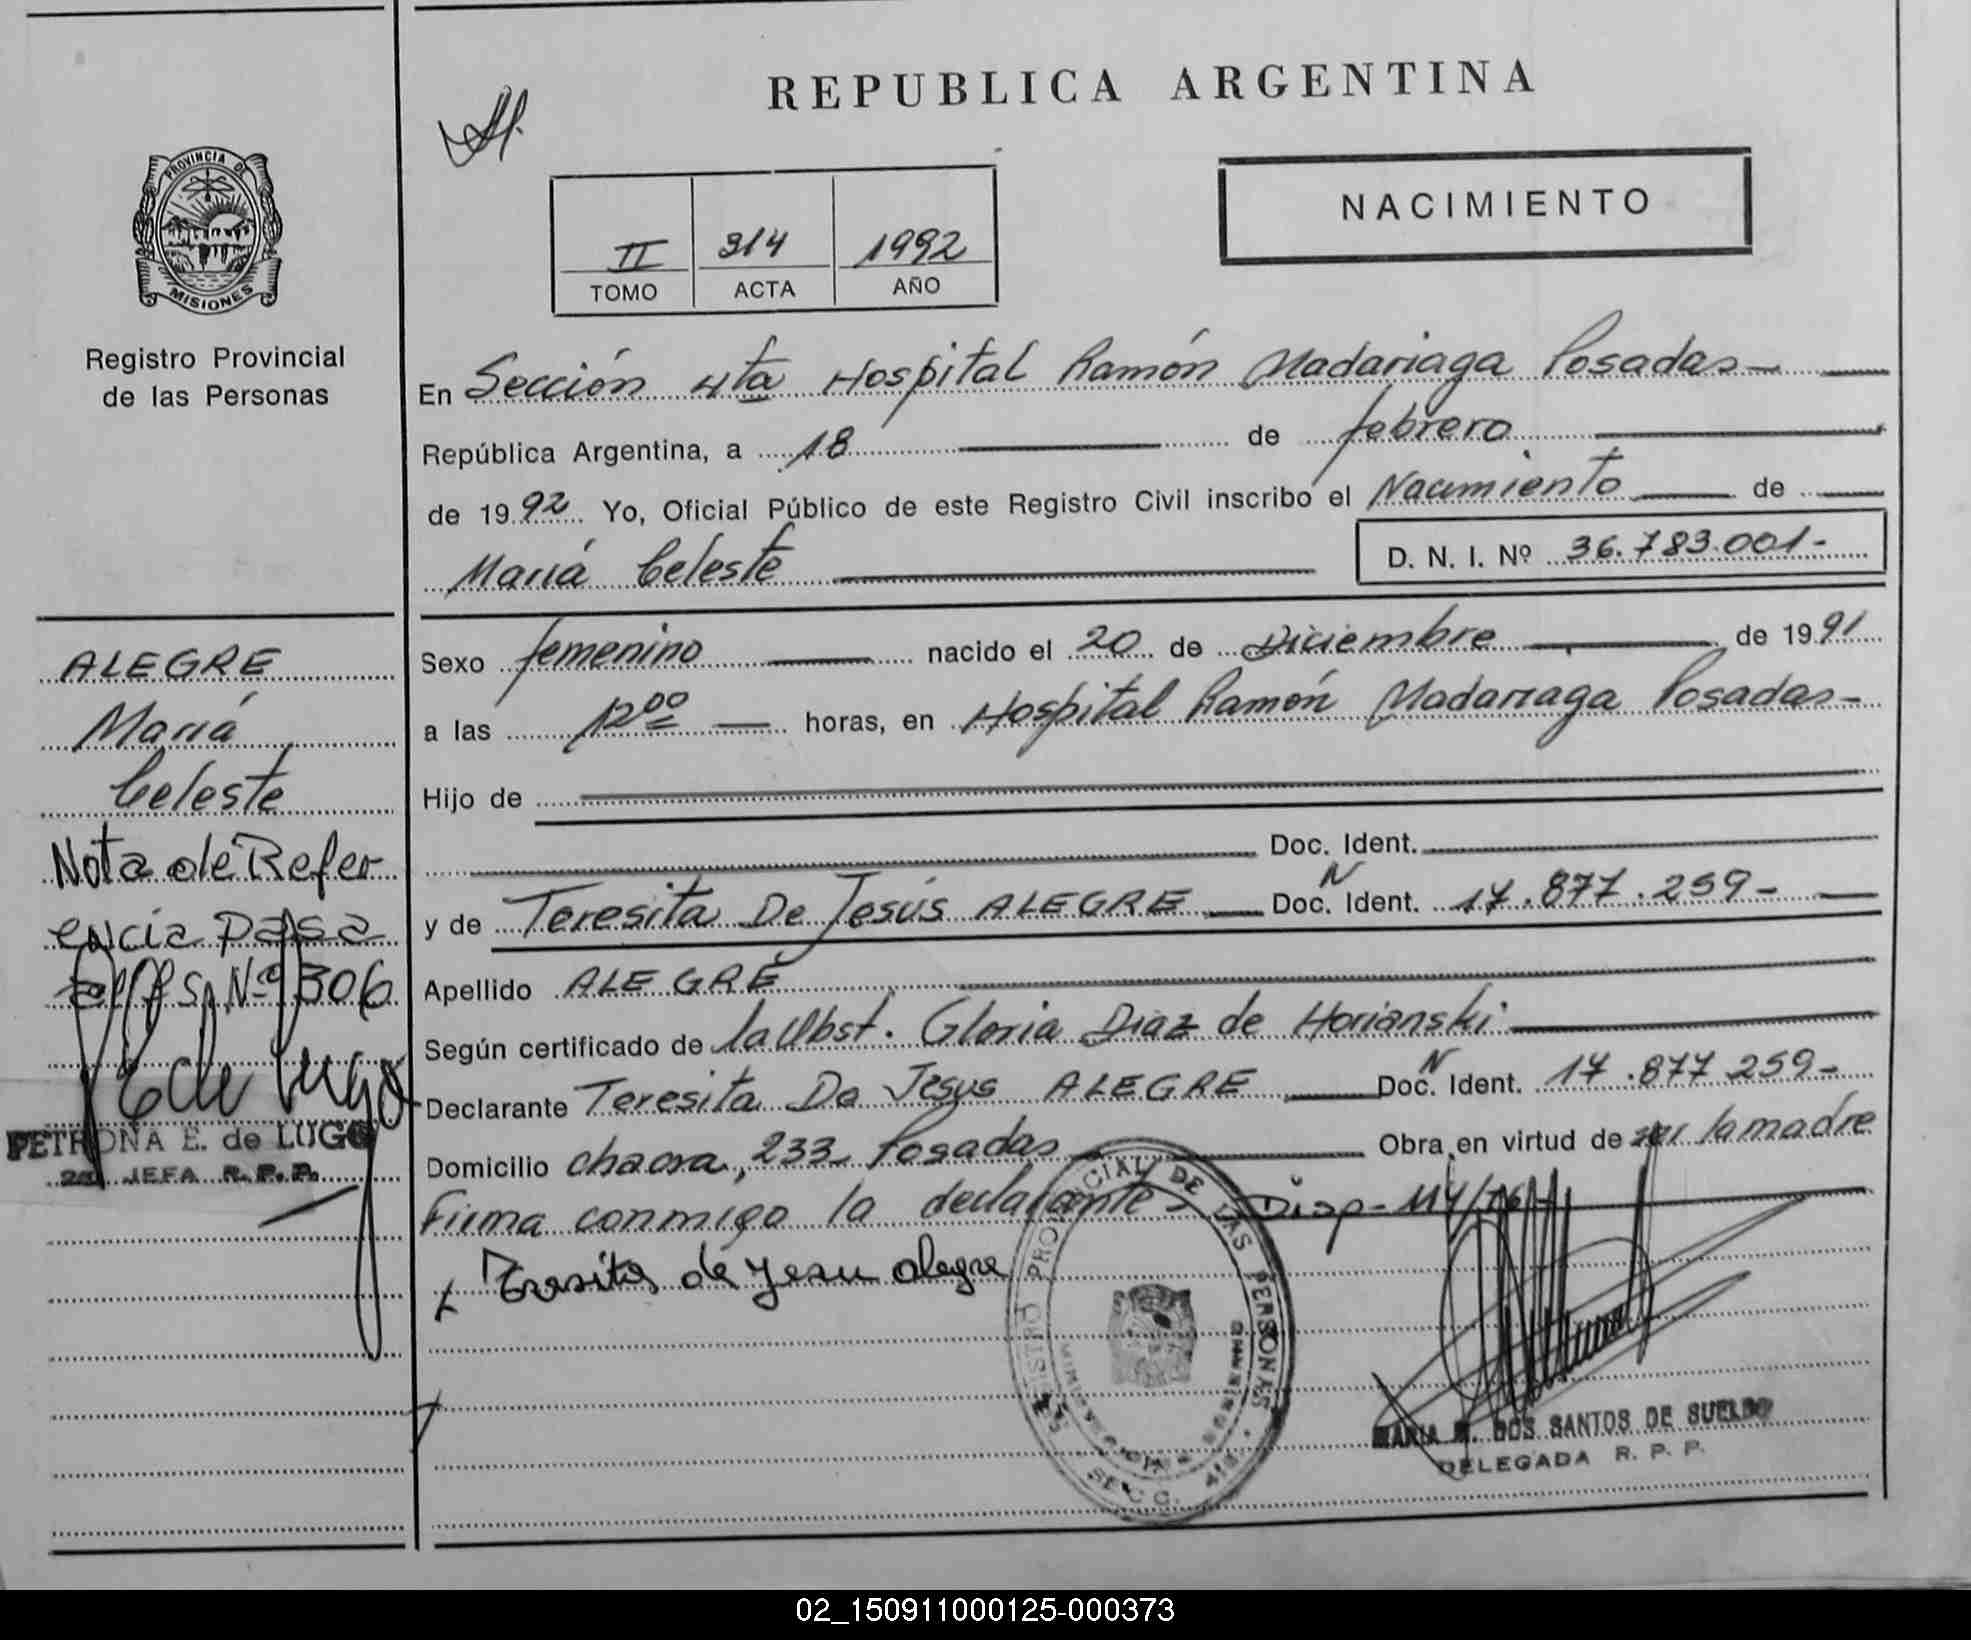 REPUBLICA ARGENTINA
NACIMIENTO
II 314 1992
TOMO ACTA AÑO
PROVINCIA DE
MISIONES
Registro Provincial
de las Personas
En Sección 4ta Hospital Ramón Madariaga Posadas
República Argentina, a 18 de febrero
de 1992 Yo, Oficial Público de este Registro Civil inscribo el Nacimiento de
María Celeste D. N. I. Nº 36.783.001-
Sexo femenino nacido el 20 de Diciembre de 1991
a las 12 00 horas, en Hospital Ramón Madariaga Posadas-
Hijo de
Doc. Ident.
y de Teresita De Jesús ALEGRE Doc. N Ident. 17.877.259-
Apellido ALEGRE
Según certificado de la Obst. Gloria Diaz de Horianski
Declarante Teresita De Jesus ALEGRE Doc. N Ident. 17.877 259-
Domicilio chacra, 233 Posadas Obra en virtud de ser la madre
Firma conmigo la declarante- Disp-
Teresita de Jesu Alegre
ALEGRE
María
Celeste
Nota de Refer
encia pasa
Nº 306
PETRONA E. de LUGO
JEFA R.P.P.
REGISTRO PROVINCIAL DE LAS PERSONAS
SECC. 4ta.
MARIA DOS SANTOS DE SUELDO
DELEGADA R. P. P.
02_150911000125-000373